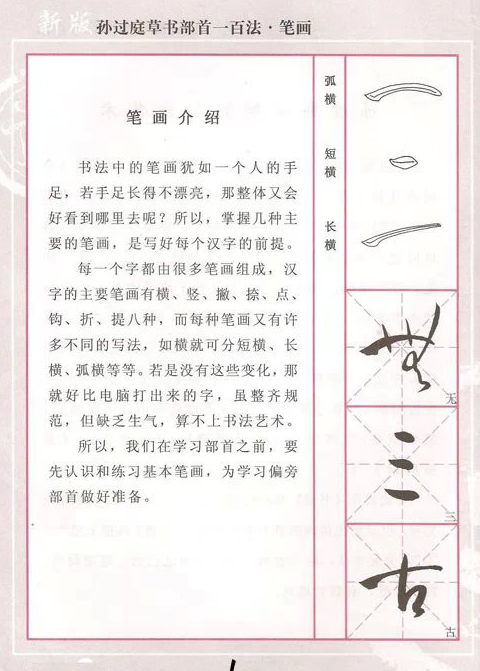 新版 孙过庭草书部首一百法·笔画
笔画介绍
书法中的笔画犹如一个人的手
足，若手足长得不漂亮，那整体又会
好看到哪里去呢？所以，掌握几种主
要的笔画，是写好每个汉字的前提。
每一个字都由很多笔画组成，汉
字的主要笔画有横、竖、撇、捺、点、
钩、折、提八种，而每种笔画又有许
多不同的写法，如横就可分短横、长
横、弧横等等。若是没有这些变化，那
就好比电脑打出来的字，虽整齐规
范，但缺乏生气，算不上书法艺术。
所以，我们在学习部首之前，要
先认识和练习基本笔画，为学习偏旁
部首做好准备。
弧横
短横
长横
无
三
古